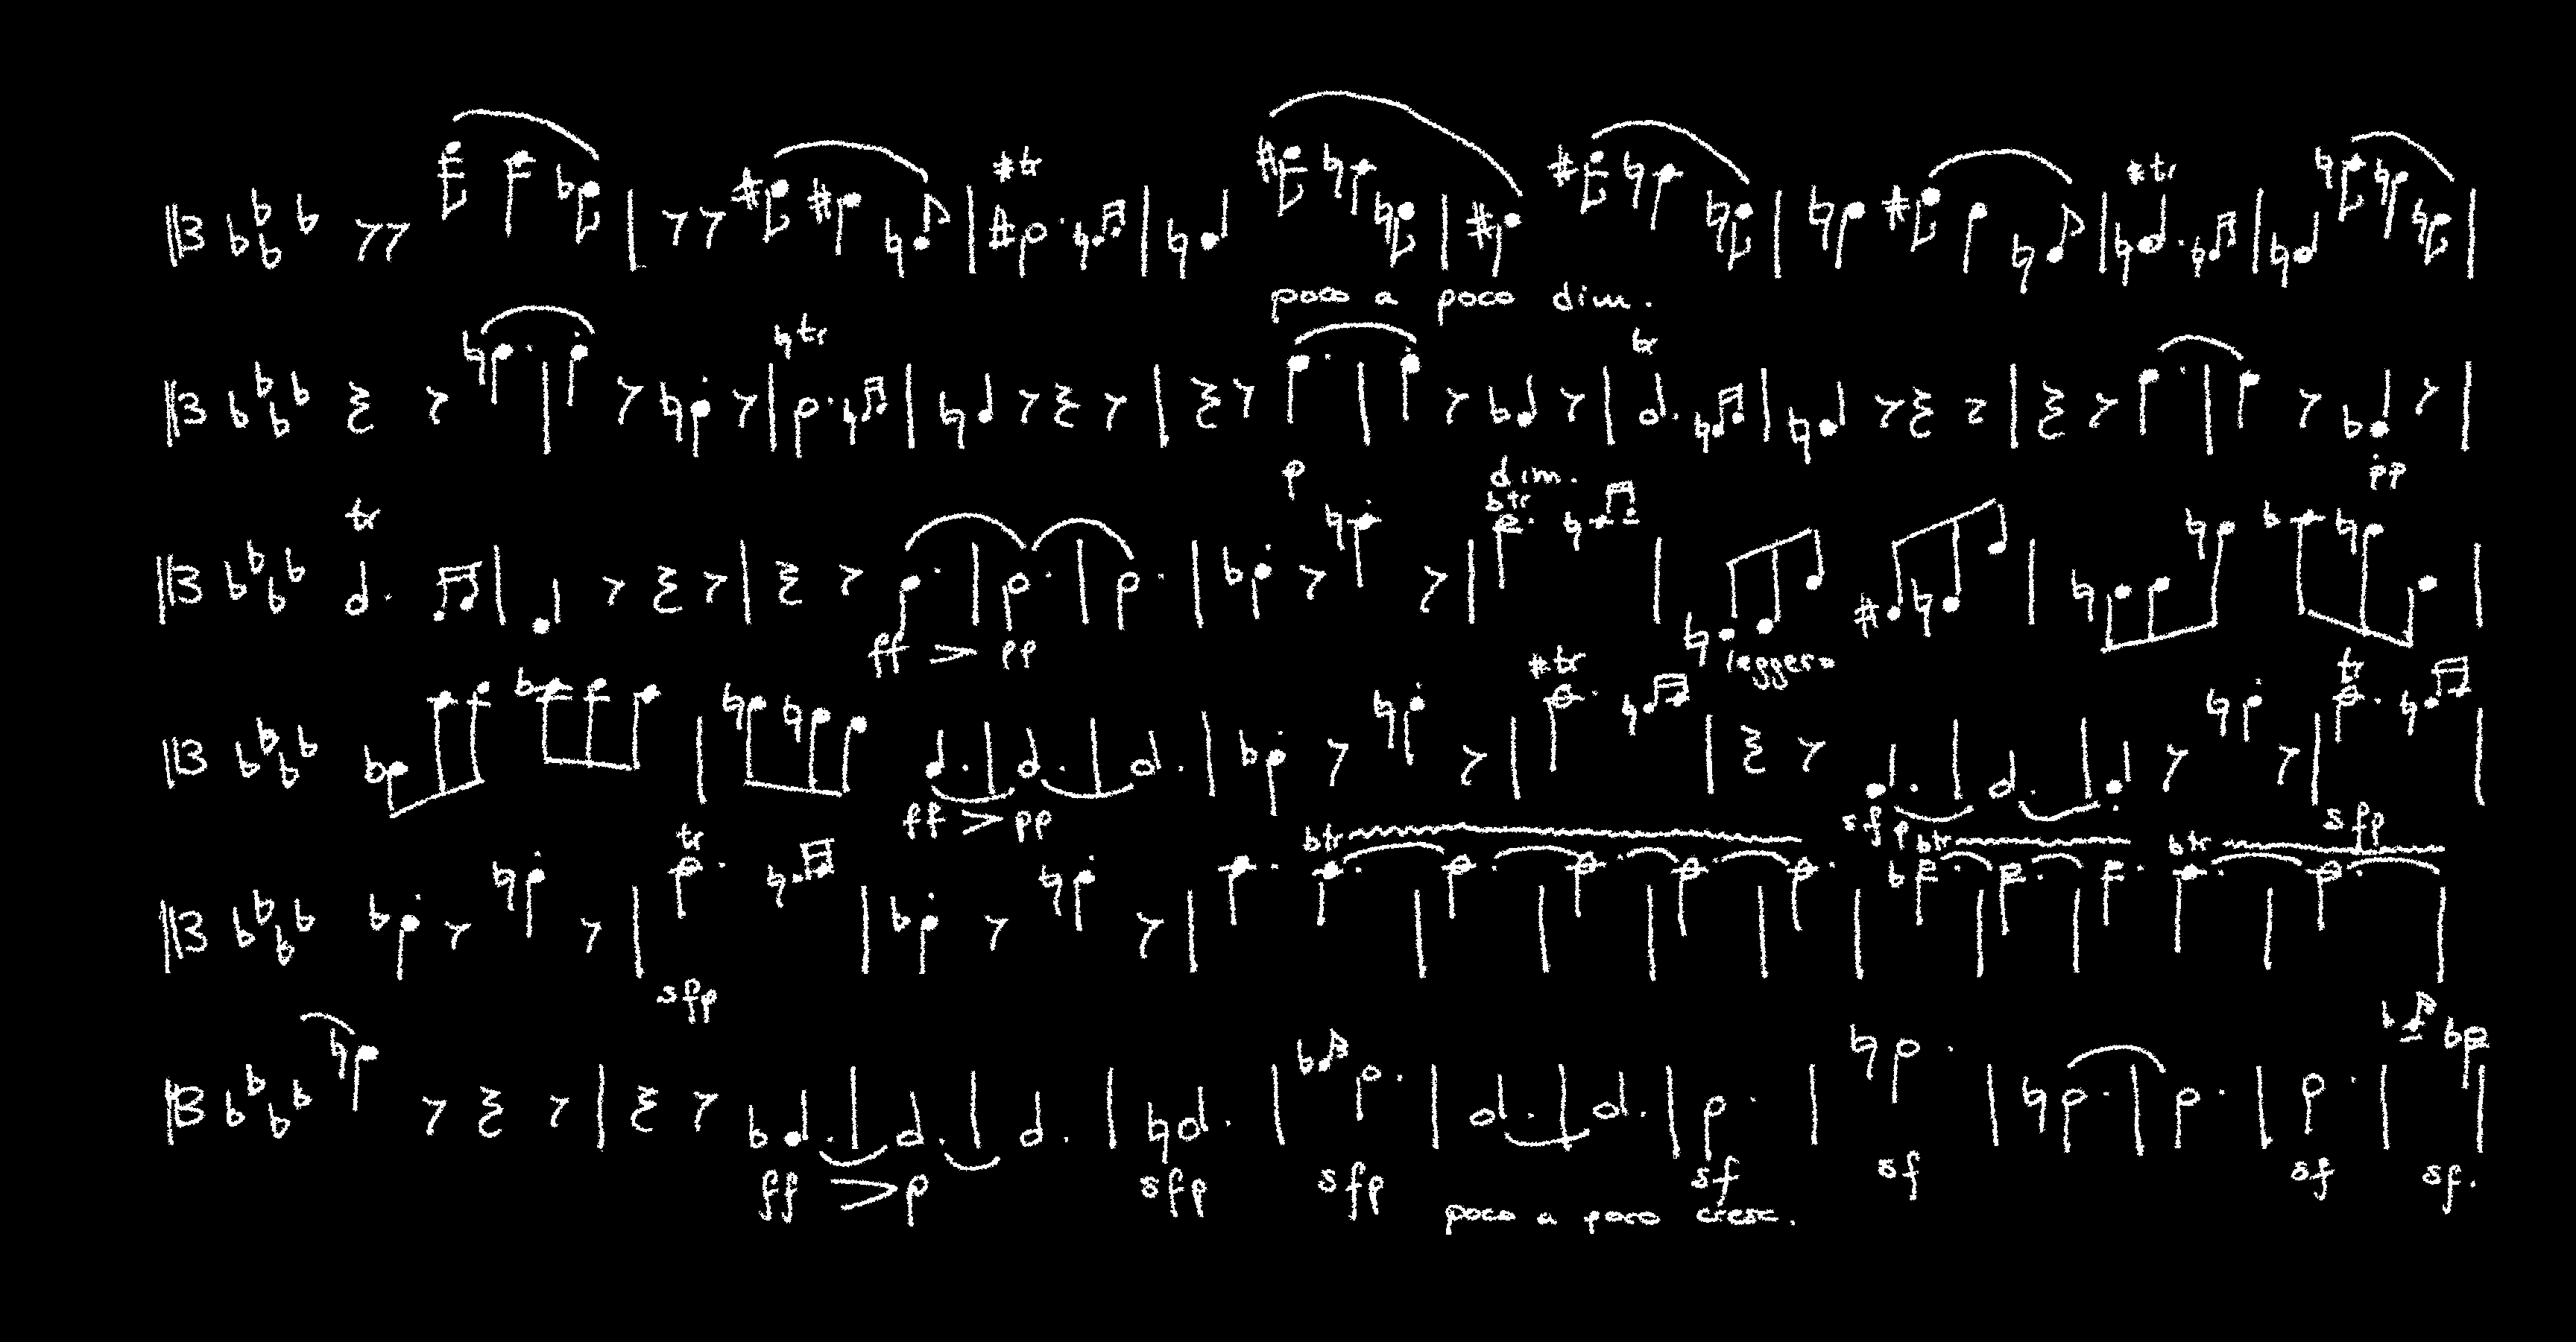 tr tr
poco a poco dim.
tr tr
p dim. pp
tr tr
ff > pp leggero
tr tr
ff > pp sf p sfp
tr tr tr tr
sfp
ff > p sfp sfp sf sf sf sf.
poco a poco cresc.